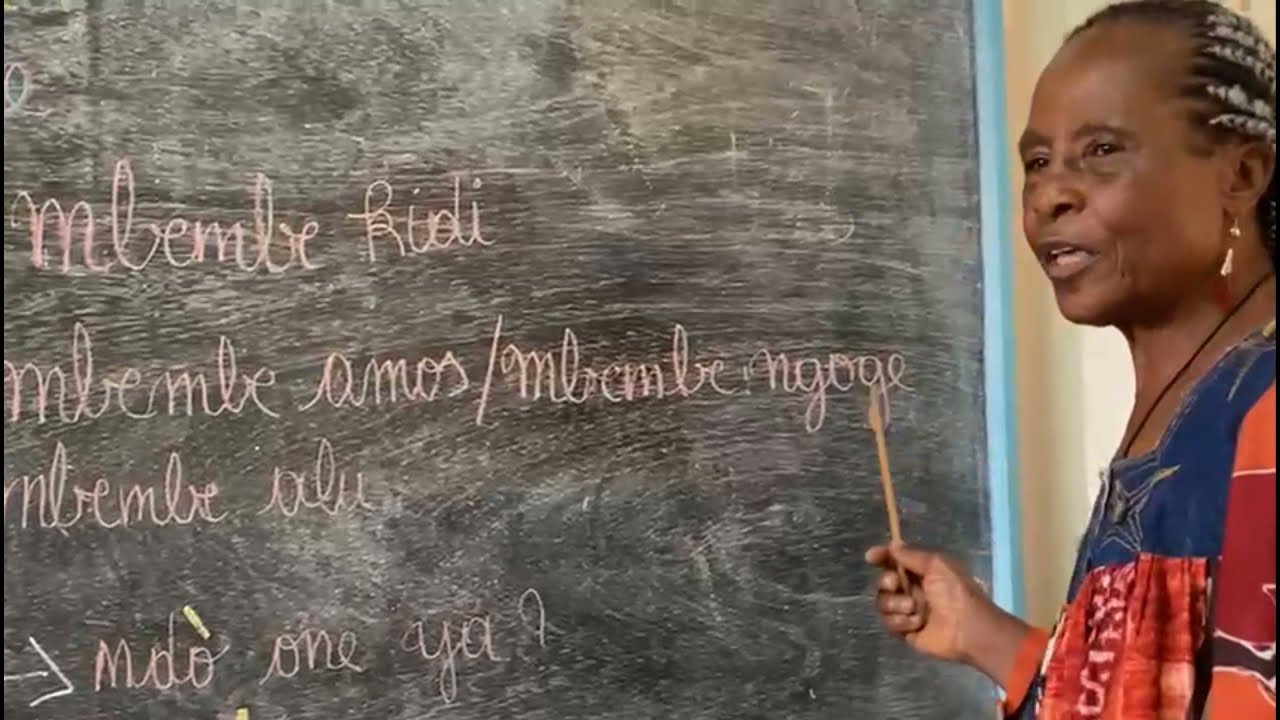 mbembe kidi
mbembe amos/mbembe ngoge
mbembe alu
→ ndò one ya?